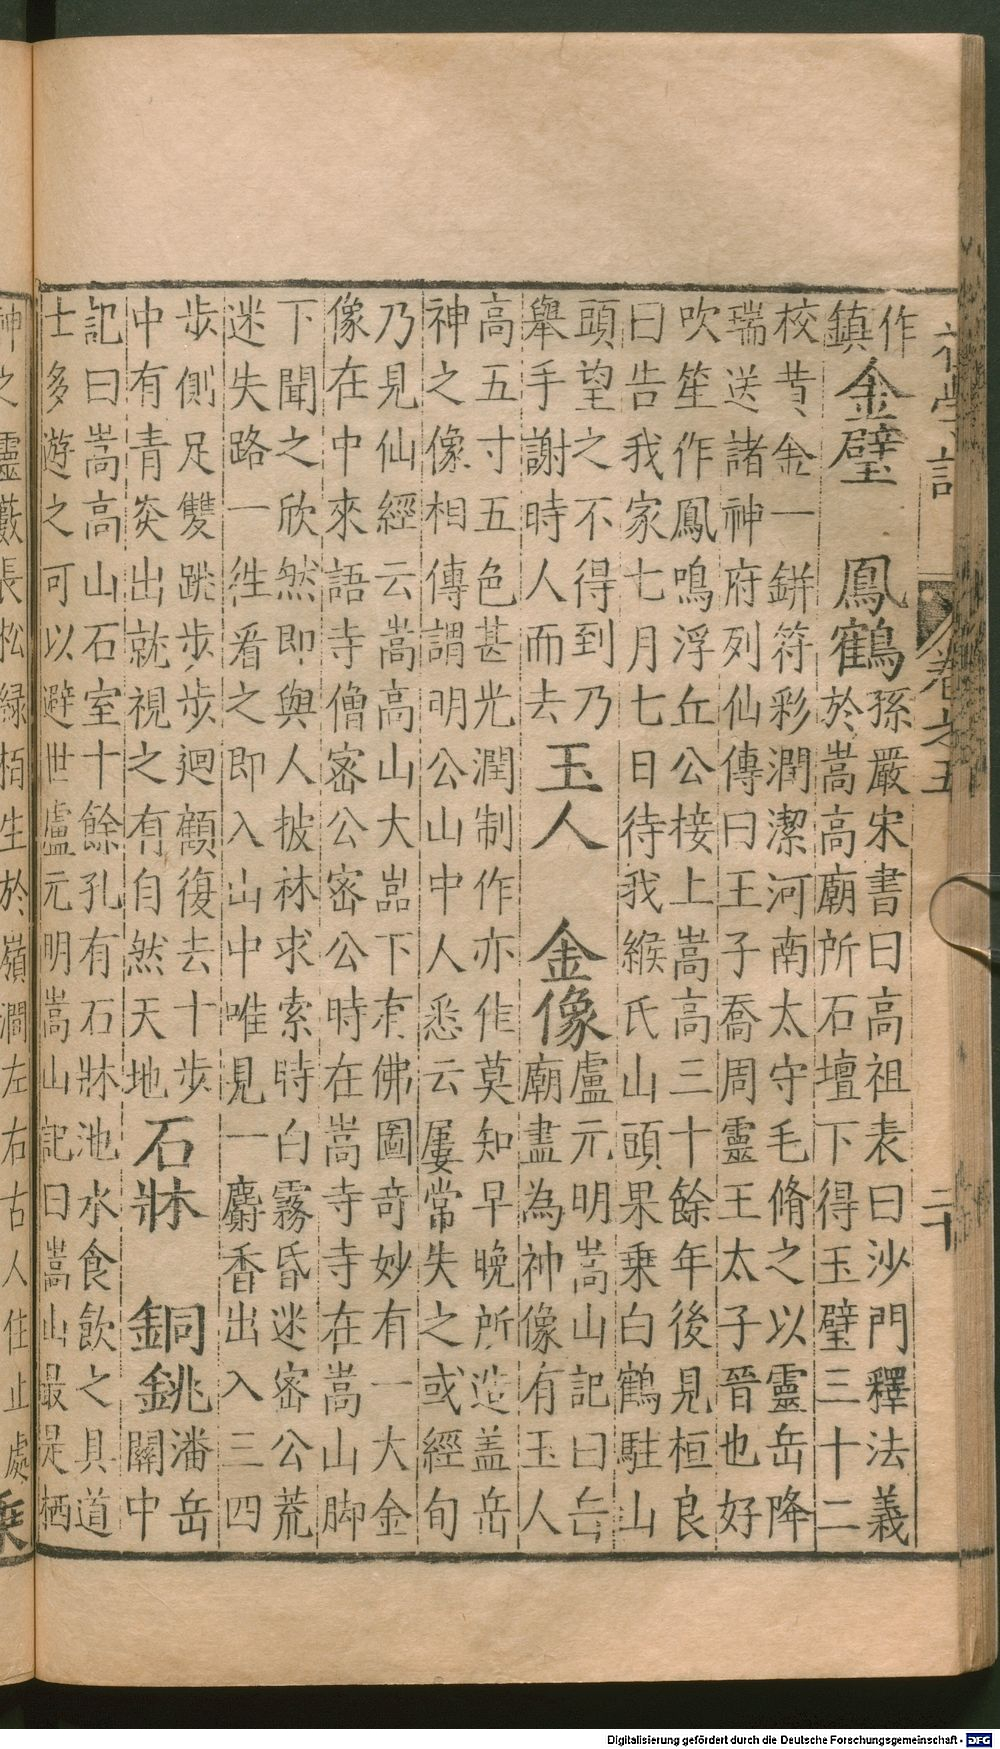 作
鎮
金璧 鳳鶴
孫嚴宋書曰高祖表曰沙門釋法義
於嵩高廟所石壇下得玉璧三十二
校黄金一鉼符彩潤潔河南太守毛脩之以靈岳降
瑞送諸神府列仙傳曰王子喬周靈王太子晉也好
吹笙作鳳鳴浮丘公接上嵩高三十餘年後見桓良
曰告我家七月七日待我緱氏山頭果乗白鶴駐山
頭望之不得到乃
舉手謝時人而去
玉人 金像
盧元明嵩山記曰岳
廟盡為神像有玉人
高五寸五色甚光潤制作亦作莫知早晚所造盖岳
神之像相傳謂明公山中人悉云屢常失之或經旬
乃見仙經云嵩高山大嵓下有佛圖竒妙有一大金
像在中來語寺僧密公密公時在嵩寺寺在嵩山脚
下聞之欣然即與人披林求索時白霧昏迷密公荒
迷失路一徃看之即入山中唯見一麝香出入三四
步側足雙跳步步迴顧復去十步
中有青炎出就視之有自然天地
石牀 銅銚
潘岳
關中
記曰嵩高山石室十餘孔有石牀池水食飲之具道
士多遊之可以避世盧元明嵩山記曰嵩山最是栖
卷之五
二十
神之靈藪長松緑栢生於嶺澗左右古人住止處
乗
Digitalisierung gefördert durch die Deutsche Forschungsgemeinschaft - DFG